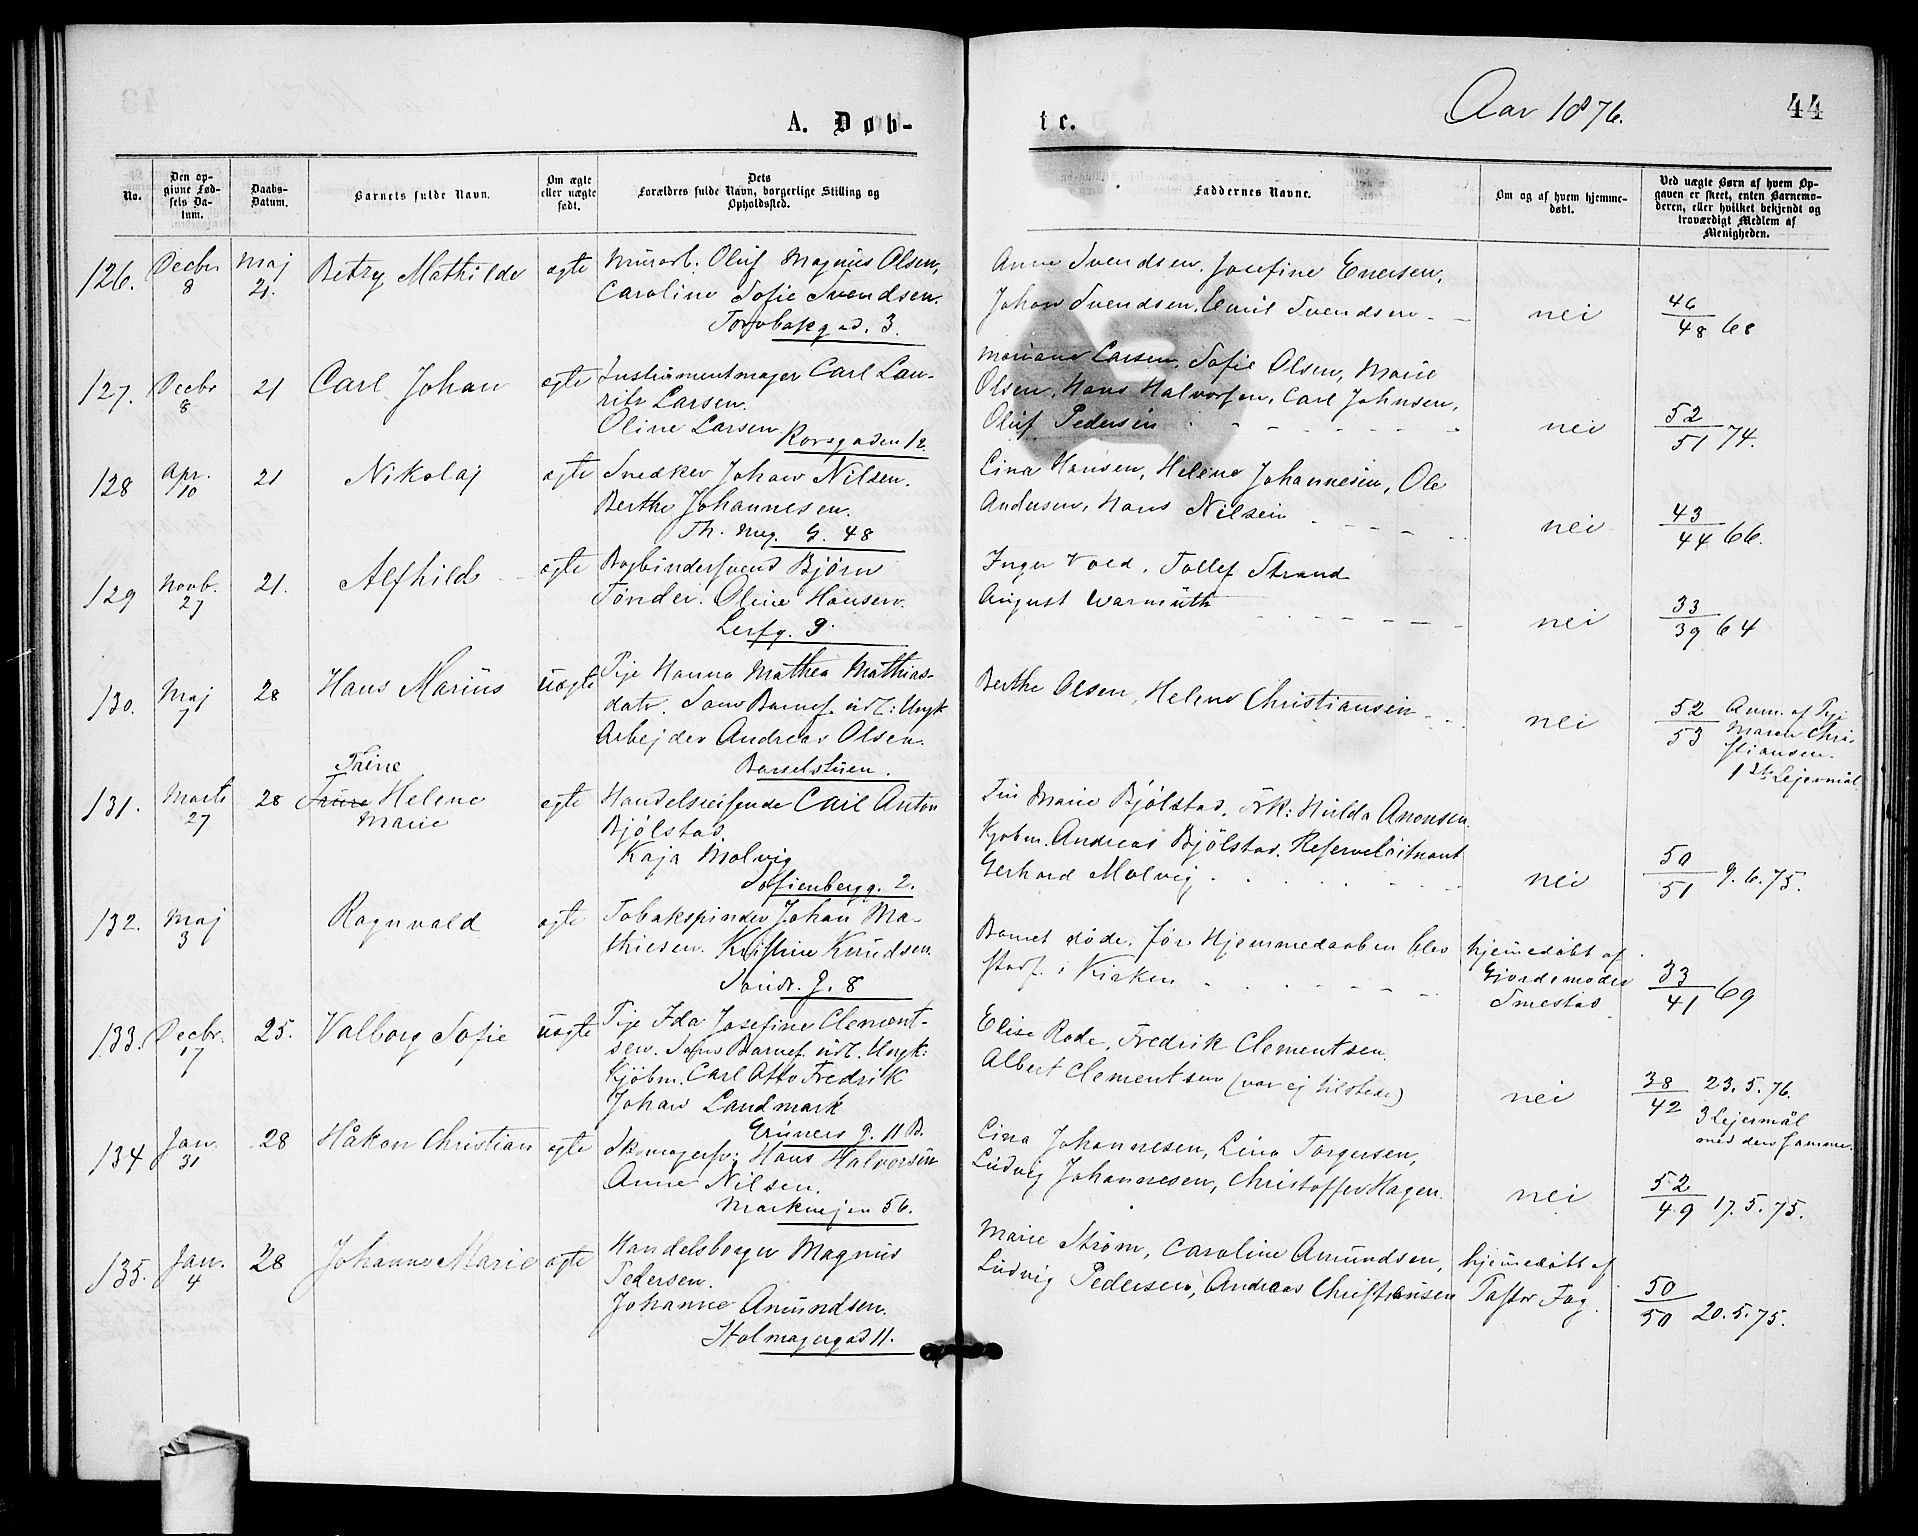 Aar 1876.
44
A. Døb-
te.
No.
Den op-
givne Fød-
sels Da-
tum.
Daabs-
Datum.
Barnets fulde Navn.
Om ægte
eller uægte
født.
Dets
Forældres fulde Navn, borgerlige Stilling og
Opholdssted.
Faddernes Navne.
Om og af hvem hjemme-
døbt.
Ved uægte Børn af hvem Op-
gaven er skeet, enten Barnemo-
deren, eller hvilket bekjendt og
troværdigt Medlem af
Menigheden.
126. Decbr 8 Maj 21. Betzy Mathilde ægte Murarb. Oluf Magnus Olsen,
Caroline Sofie Svendsen.
Torvbakgad. 3.
Anne Svendsen. Josefine Enersen,
Johan Svendsen, Emil Svendsen
nei
46/48 68
127. Decbr 8 21 Carl Johan ægte Instrumentmager Carl Lau-
ritz Larsen.
Oline Larsen
Korsgaden 12.
Mariane Larsen, Sofie Olsen, Marie
Olsen, Hans Halvorsen, Carl Johnsen,
Oluf Pedersen
nei
52/51 74.
128 Apr. 10 21 Nikolaj ægte Snedker Johan Nilsen.
Berthe Johannesen.
Th. Mey. G. 48
Lina Hansen, Helene Johannesen, Ole
Andersen, Hans Nilsen
nei
43/44 66.
129 Novb. 27 21. Alfhild ægte Bogbindersvend Bjørn
Tønder. Oline Hansen.
Lerfg. 9.
Inger Vold, Tollef Strand
August Warmuth
nei
33/39 64
130. Maj 7 28 Hans Marius uægte Pige Hanna Mathea Mathias-
datr. Som Barnef. udl: Ungk
Arbejder Andreas Olsen.
Barselstuen.
Berthe Olsen, Helene Christiansen
nei
52/53 Anm. af Pige
Maren Chri-
stiansen.
1ste Lejermål
131. Marts 27 28 Thrine
Helene
Marie
ægte Handelsreisende Carl Anton
Bjølstad
Kaja Molvig
Sofienbergg. 2.
Fru Marie Bjølstad, Frk: Hulda Amonsen.
Kjøbm. Andreas Bjølstad. Reserveløitnant
Gerhard Molvig
nei
50/51 9.6.75.
132. Maj 3 Ragnvald ægte Tobakspinder Johan Ma-
thiesen. Kristine Knudsen.
Sandr. G. 8
Barnet døde, før Hjemmedaaben blev
stadf. i Kirken
hjemmedøbt af
Gjordemoder
Smestad
33/41 69
133. Decbr. 17 25. Valborg Sofie uægte Pige Ida Josefine Clement-
sen. Som Barnef. udl. Ungk:
Kjøbm. Carl Otto Fredrik
Johan Landmark
Grüners g. 11 B.
Elise Rode, Fredrik Clementsen.
Albert Clementsen (var ej tilstede)
nei
38/42 23.5.76.
3 Lejermål
med den samme.
134 Jan. 31 28 Håkon Christian ægte Skomagersv: Hans Halvorsen
Anne Nilsen.
Markvejen 56.
Lina Johannesen, Lina Torgersen,
Ludvig Johannesen, Christoffer Hagen.
nei
52/49 17.5.75.
135. Jan. 4 28 Johanne Marie ægte Handelsborger Magnus
Pedersen.
Johanne Amundsen.
Holmagergad 11.
Marie Strøm, Caroline Amundsen,
Ludvig Pedersen, Andreas Christiansen
hjemmedøbt af
Pastor Fog.
50/50 20.5.75.